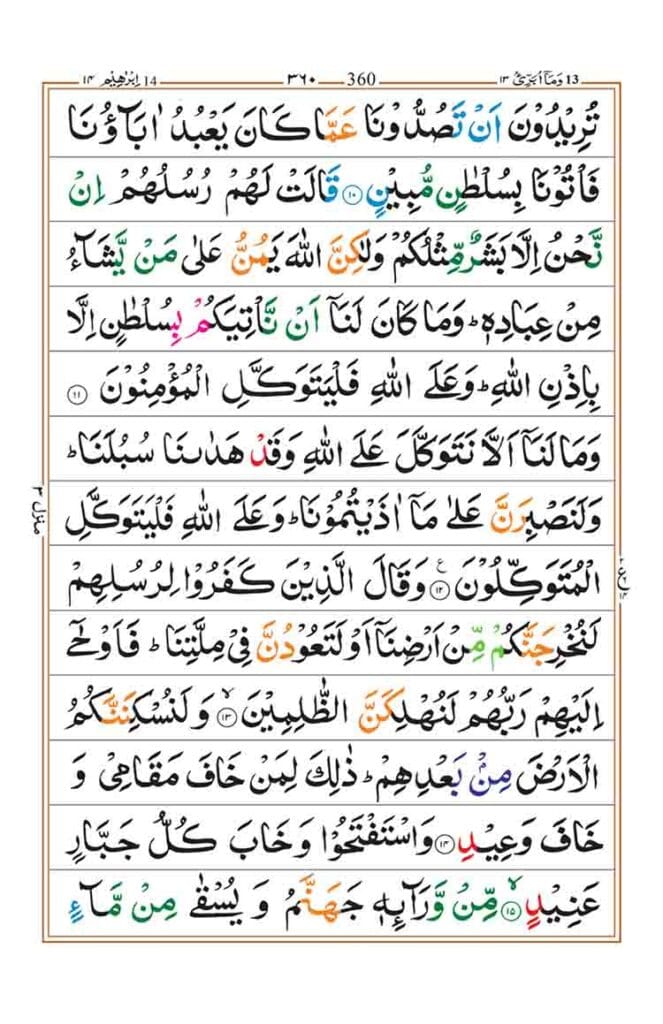 ابرٰهیم 14 ١٤ ٣٦٠ 360 وما ابرئ 13 ١٣
تُرِیْدُوْنَ اَنْ تَصُدُّوْنَا عَمَّا كَانَ یَعْبُدُ اٰبَآؤُنَا
فَاْتُوْنَا بِسُلْطٰنٍ مُّبِیْنٍ ﴿١٠﴾ قَالَتْ لَهُمْ رُسُلُهُمْ اِنْ
نَّحْنُ اِلَّا بَشَرٌ مِّثْلُكُمْ وَلٰكِنَّ اللّٰهَ یَمُنُّ عَلٰی مَنْ یَّشَآءُ
مِنْ عِبَادِهٖؕ وَمَا كَانَ لَنَاۤ اَنْ نَّاْتِیَكُمْ بِسُلْطٰنٍ اِلَّا
بِاِذْنِ اللّٰهِؕ وَعَلَی اللّٰهِ فَلْیَتَوَكَّلِ الْمُؤْمِنُوْنَ ﴿١١﴾
وَمَا لَنَاۤ اَلَّا نَتَوَكَّلَ عَلَی اللّٰهِ وَقَدْ هَدٰىنَا سُبُلَنَاؕ
وَلَنَصْبِرَنَّ عَلٰی مَاۤ اٰذَیْتُمُوْنَاؕ وَعَلَی اللّٰهِ فَلْیَتَوَكَّلِ
الْمُتَوَكِّلُوْنَ ﴿١٢﴾ وَقَالَ الَّذِیْنَ كَفَرُوْا لِرُسُلِهِمْ
لَنُخْرِجَنَّكُمْ مِّنْ اَرْضِنَاۤ اَوْ لَتَعُوْدُنَّ فِیْ مِلَّتِنَاؕ فَاَوْحٰۤی
اِلَیْهِمْ رَبُّهُمْ لَنُهْلِكَنَّ الظّٰلِمِیْنَ ﴿١٣﴾ وَلَنُسْكِنَنَّكُمُ
الْاَرْضَ مِنْۢ بَعْدِهِمْؕ ذٰلِكَ لِمَنْ خَافَ مَقَامِیْ وَ
خَافَ وَعِیْدِ ﴿١٤﴾ وَاسْتَفْتَحُوْا وَخَابَ كُلُّ جَبَّارٍ
عَنِیْدٍ ﴿١٥﴾ مِّنْ وَّرَآىِٕهٖ جَهَنَّمُ وَیُسْقٰی مِنْ مَّآءٍ
منزل ٣